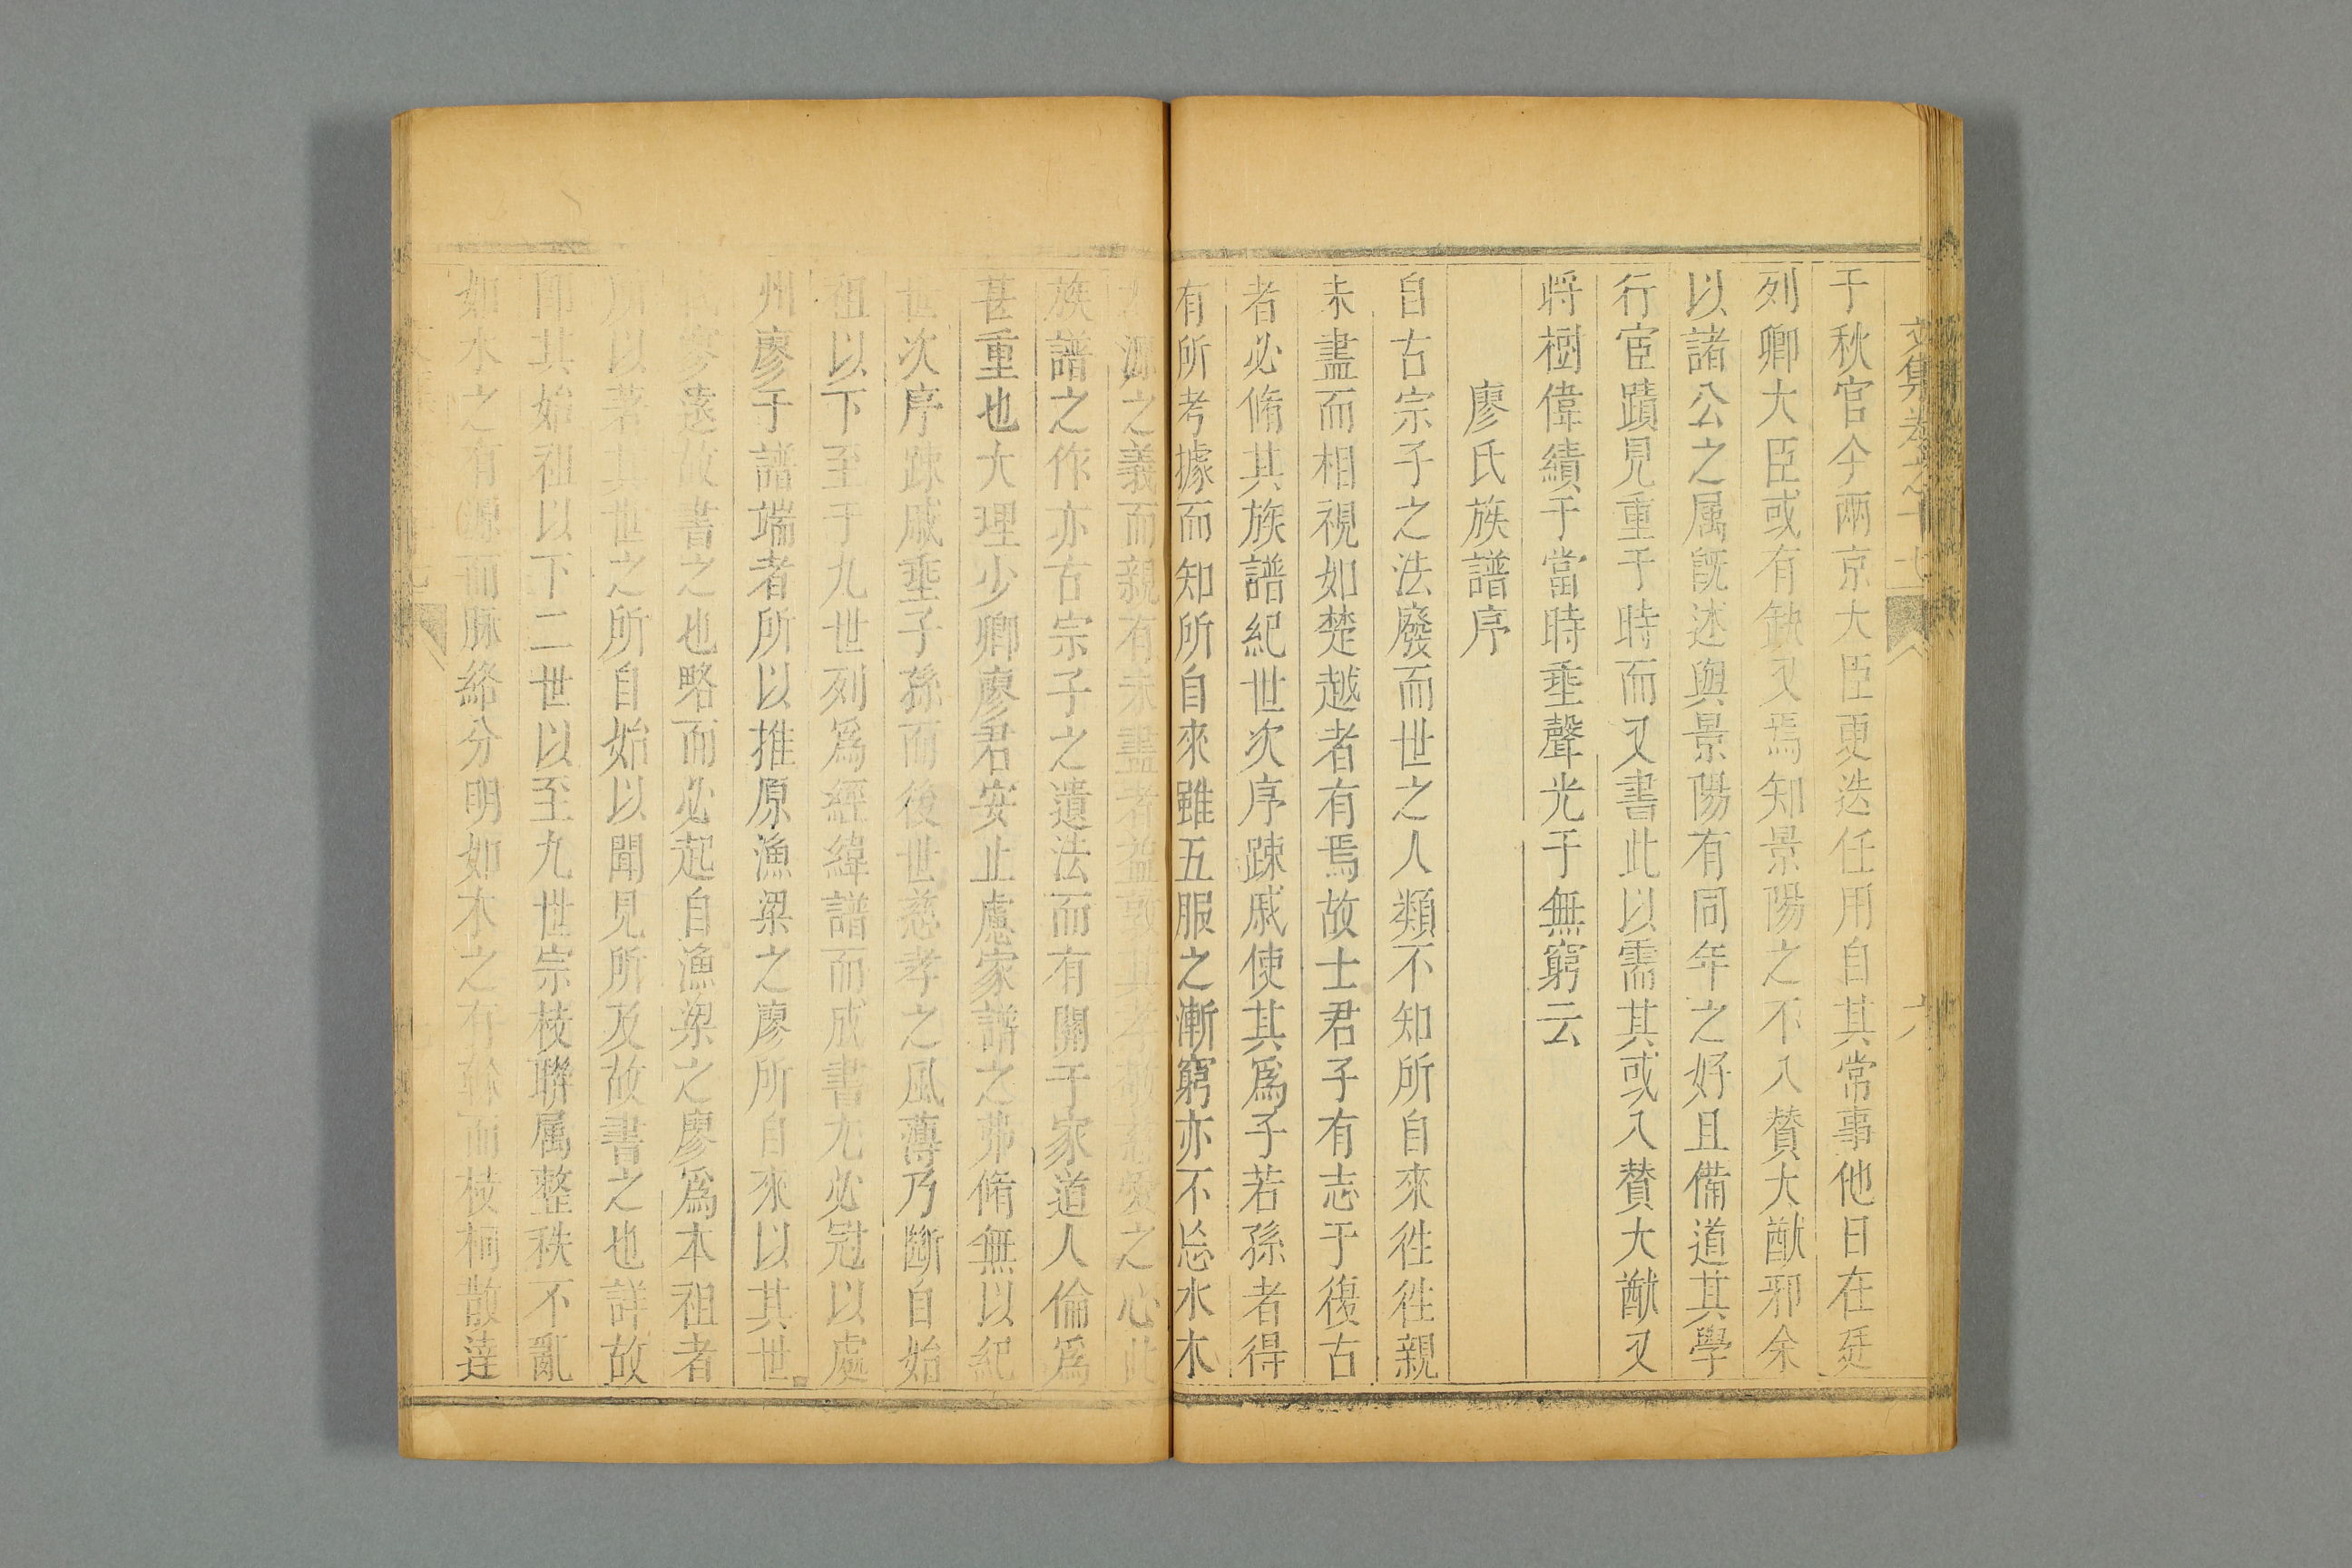 文集卷之十七
六
于秋官今兩京大臣更迭任用自其常事他日在廷
列卿大臣或有缺又焉知景陽之不入賛大猷邪余
以諸公之属旣述與景陽有同年之好且備道其學
行宦蹟見重于時而又書此以需其或入賛大猷又
将樹偉績于當時垂聲光于無窮云
廖氏族譜序
自古宗子之法廢而世之人類不知所自來徃徃親
未盡而相視如楚越者有焉故士君子有志于復古
者必脩其族譜紀世次序踈戚使其爲子若孫者得
有所考據而知所自來雖五服之漸窮亦不忘水木
源之義而親有未盡者益敦其孝敬慈愛之心此
族譜之作亦古宗子之遺法而有關于家道人倫爲
甚重也大理少卿廖君安止慮家譜之弗脩無以紀
世次序踈戚垂子孫而後世慈孝之風薄乃斷自始
祖以下至于九世列爲經緯譜而成書尤必冠以處
州廖于譜端者所以推原漁梁之廖所自來以其世
廖遠故書之也略而必起自漁梁之廖爲本祖者
所以著其世之所自始以聞見所及故書之也詳故
即其始祖以下二世以至九世宗枝聨属整秩不亂
如水之有源而脉絡分明如木之有榦而枝柯散達